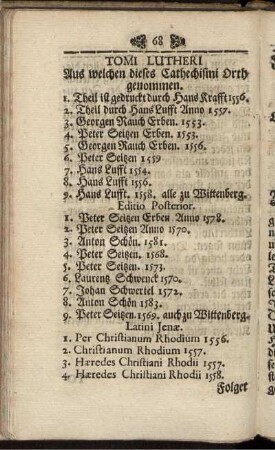 68
TOMI LUTHERI
Aus welchen dieses Cathechismi Orth
genommen.
1. Theil ist gedruckt durch Hans Krafft 1556.
2. Theil durch Hans Lufft Anno 1557.
3. Georgen Rauch Erben. 1553.
4. Peter Seitzen Erben. 1553.
5. Georgen Rauch Erben. 1556.
6. Peter Seitzen 1559
7. Hans Lufft 1554.
8. Hans Lufft 1556.
9. Hans Lufft. 1558. alle zu Wittenberg.
Editio Posterior.
1. Peter Seitzen Erben Anno 1578.
2. Peter Seitzen Anno 1570.
3. Anton Schön. 1581.
4. Peter Seitzen. 1568.
5. Peter Seitzen. 1573.
6. Laurentz Schwenck 1570.
7. Johan Schwertel 1572.
8. Anton Schön 1583.
9. Peter Seitzen. 1569. auch zu Wittenberg.
Latini Jenæ.
1. Per Christianum Rhodium 1556.
2. Christianum Rhodium 1557.
3. Hæredes Christiani Rhodii 1557.
4. Hæredes Christiani Rhodii 1558.
Folget